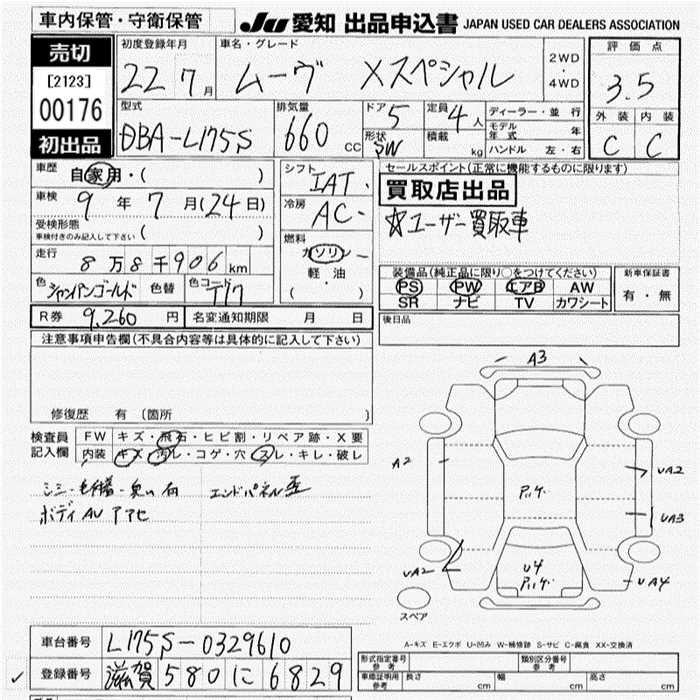 車内保管・守衛保管
JU 愛知 出品申込書 JAPAN USED CAR DEALERS ASSOCIATION
売切
[2123]
00176
初出品
初度登録年月 22 7月
車名・グレード ムーヴ Xスペシャル
2WD・4WD
評価点 3.5
外装 内装
C C
型式 DBA-L175S
排気量 660 cc
ドア 5
形状 SW
定員 4人
積載 kg
ディーラー・並行
モデル年式 年
ハンドル 左・右
車歴 自家用・( )
車検 9年7月(24日)
受検形態
車検付きのみ記入して下さい ( )
走行 8万8千906km
色 シャンパンゴールド 色替 色コード T17
シフト IAT
冷房 AC
燃料 ガソリン
軽・油
( )
セールスポイント(正常に機能するものに限ります)
買取店出品
☆ユーザー買取車
装備品(純正品に限り○をつけてください)
PS PW エアB AW
SR ナビ TV カワシート
新車保証書
有・無
R券 9,260円 名変通知期限 月 日
後日品
注意事項申告欄(不具合内容等は具体的に記入して下さい)
修復歴 有 〔箇所 〕
検査員記入欄
FW キズ・飛石・ヒビ割・リペア跡・X要
内装 キズ・汚レ・コゲ・穴・スレ・キレ・破レ
エンドパネル歪
ボディ AU アアセ
A3
A2
UA2
UA3
UA2
U4
UA4
スペア
A-キズ E-エクボ U-凹み W-補修跡 S-サビ C-腐食 XX-交換済
車台番号 L175S-0329610
登録番号 滋賀 580 に 6829
型式指定番号 参考 類別区分番号 参考
車庫証明用 参考 長さ cm 幅 cm 高さ cm